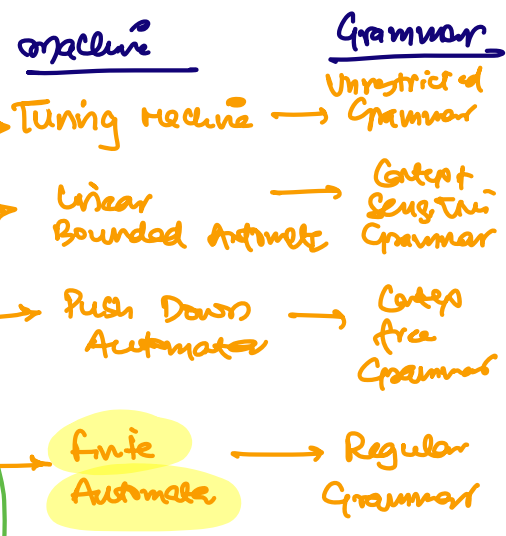 Machine
Grammar
Tuning Machine
Unrestricted
Grammar
Linear
Bounded Automata
Context
Sensitive
Grammar
Push Down
Automata
Context
free
Grammar
finite
Automata
Regular
Grammar